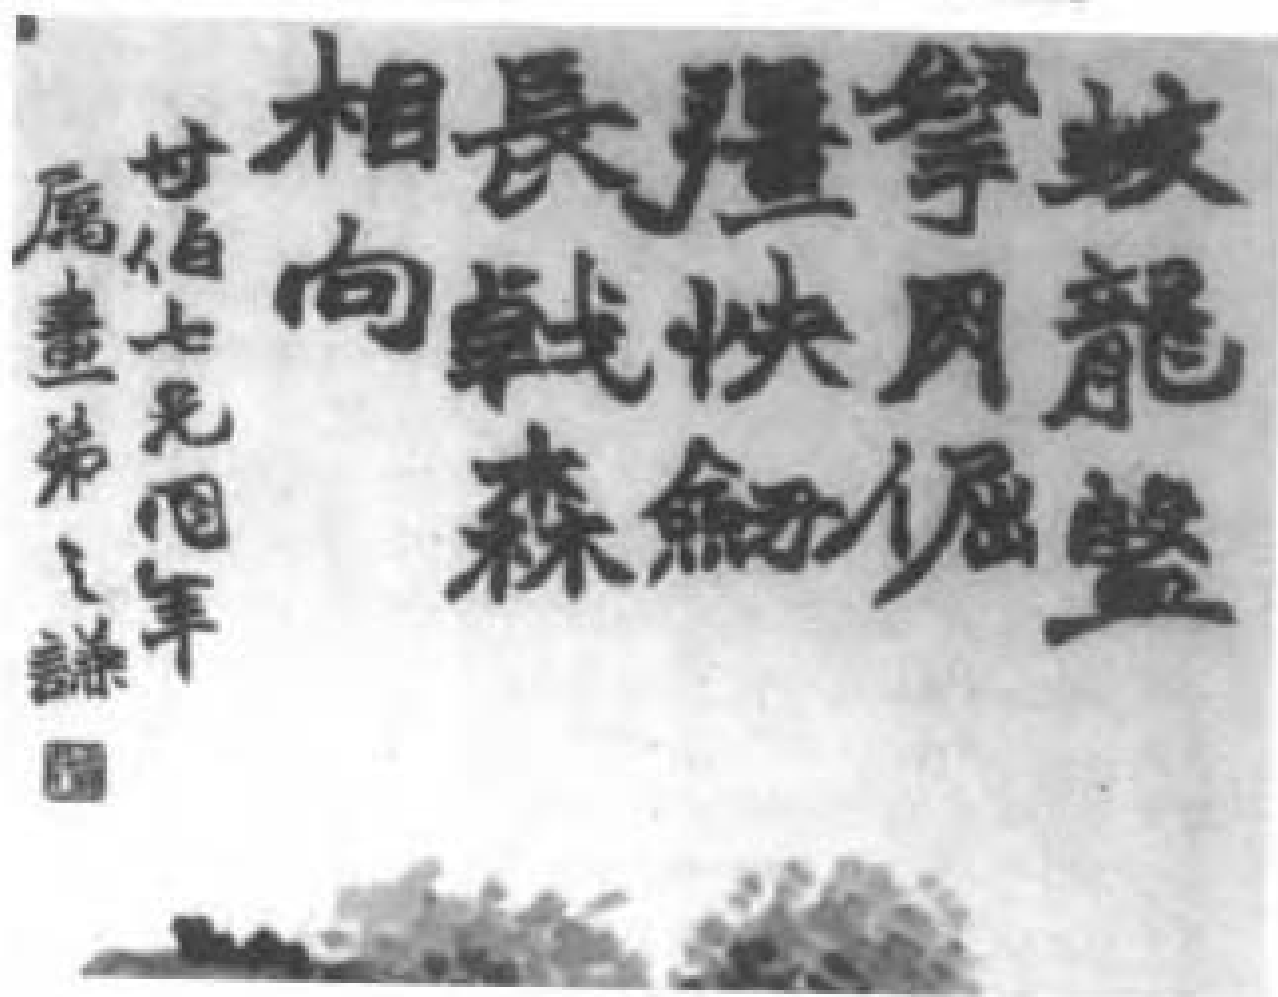 蛟龍盤
拏肉倔
彊快劒
長戟森
相向
甘伯七兄同年
属畫弟之謙